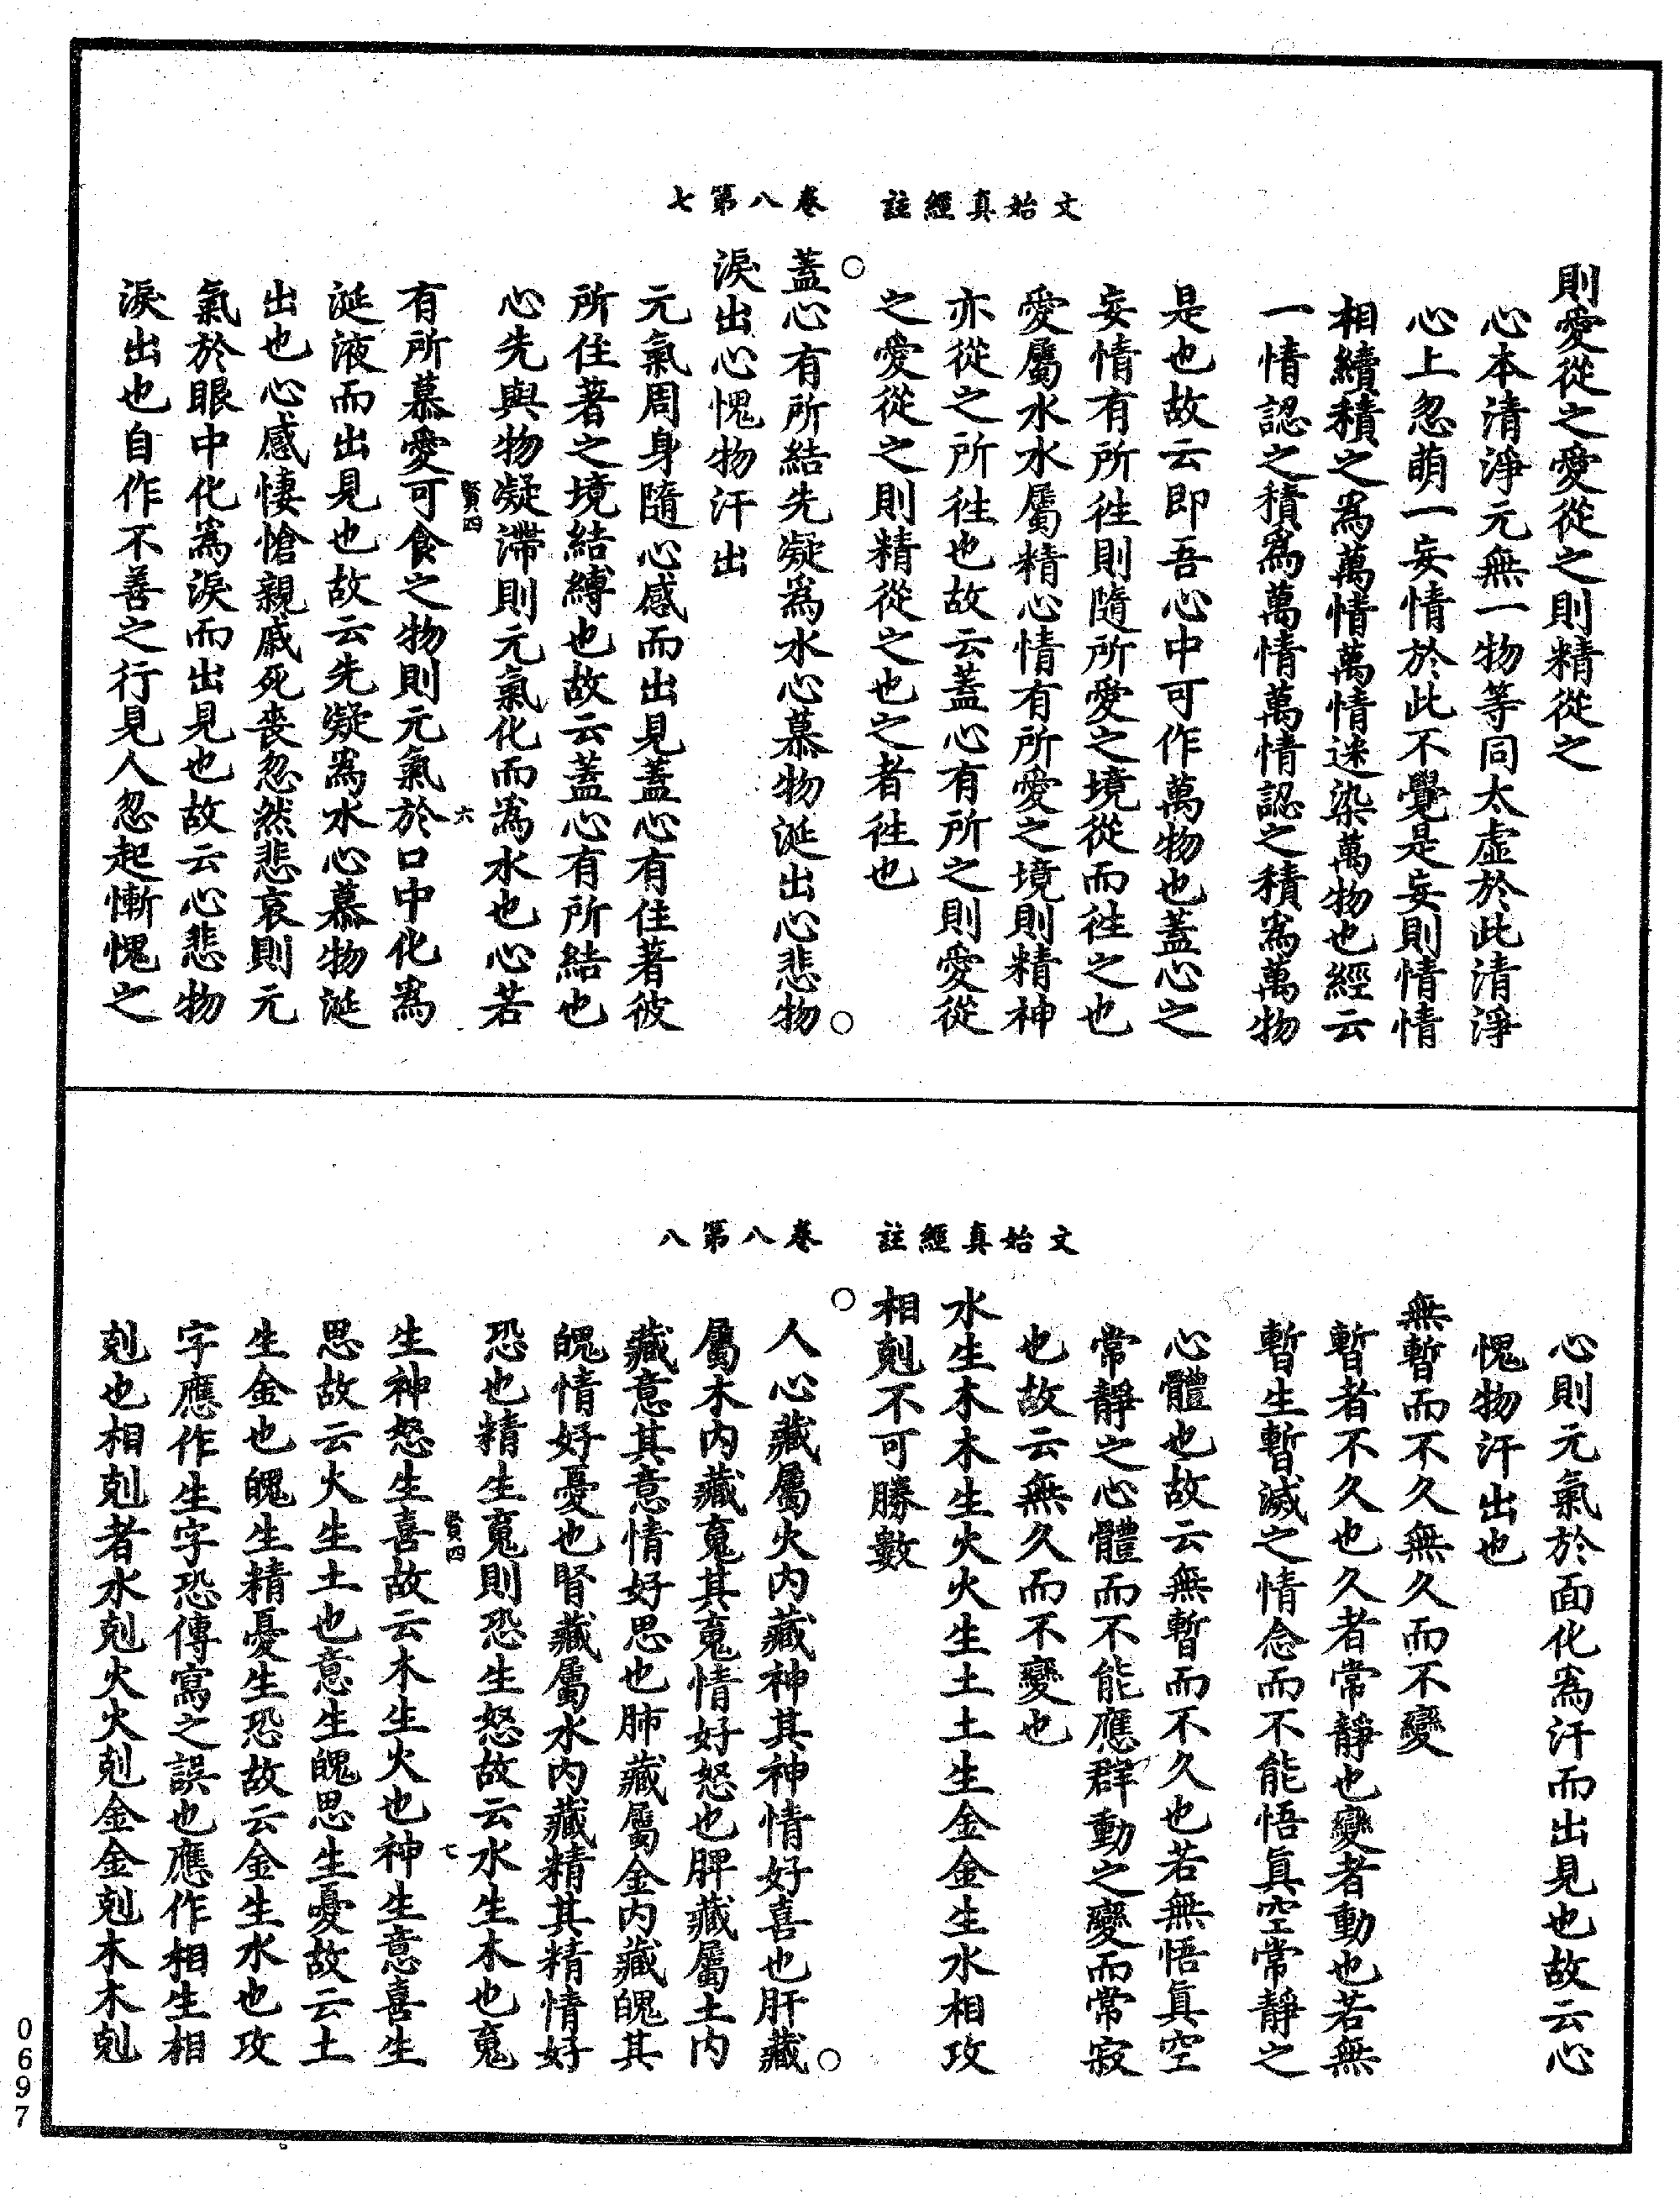 文始真經註　卷八第七
則愛從之愛從之則精從之
心本清淨元無一物等同太虛於此清淨
心上忽萌一妄情於此不覺是妄則情情
相續積之為萬情萬情迷染萬物也經云
一情認之積為萬情萬情認之積為萬物
是也故云即吾心中可作萬物也蓋心之
妄情有所往則隨所愛之境從而往之也
愛屬水水屬精心情有所愛之境則精神
亦從之所往也故云蓋心有所之則愛從
之愛從之則精從之也之者往也
○
蓋心有所結先凝為水心慕物涎出心悲物
○
淚出心愧物汗出
元氣周身隨心感而出見蓋心有住著彼
所住著之境結縛也故云蓋心有所結也
心先與物凝滯則元氣化而為水也心若
賢四　六
有所慕愛可食之物則元氣於口中化為
涎液而出見也故云先凝為水心慕物涎
出也心感悽愴親戚死喪忽然悲哀則元
氣於眼中化為淚而出見也故云心悲物
淚出也自作不善之行見人忽起慚愧之
文始真經註　卷八第八
心則元氣於面化為汗而出見也故云心
愧物汗出也
無暫而不久無久而不變
暫者不久也久者常靜也變者動也若無
暫生暫滅之情念而不能悟真空常靜之
心體也故云無暫而不久也若無悟真空
常靜之心體而不能應群動之變而常寂
也故云無久而不變也
水生木木生火火生土土生金金生水相攻
相剋不可勝數
○
人心藏屬火內藏神其神情好喜也肝藏
○
屬木內藏䰟其䰟情好怒也脾藏屬土內
藏意其意情好思也肺藏屬金內藏魄其
魄情好憂也腎藏屬水內藏精其精情好
恐也精生䰟則恐生怒故云水生木也䰟
賢四　七
生神怒生喜故云木生火也神生意喜生
思故云火生土也意生魄思生憂故云土
生金也魄生精憂生恐故云金生水也攻
字應作生字恐傳寫之誤也應作相生相
剋也相剋者水剋火火剋金金剋木木剋
0697